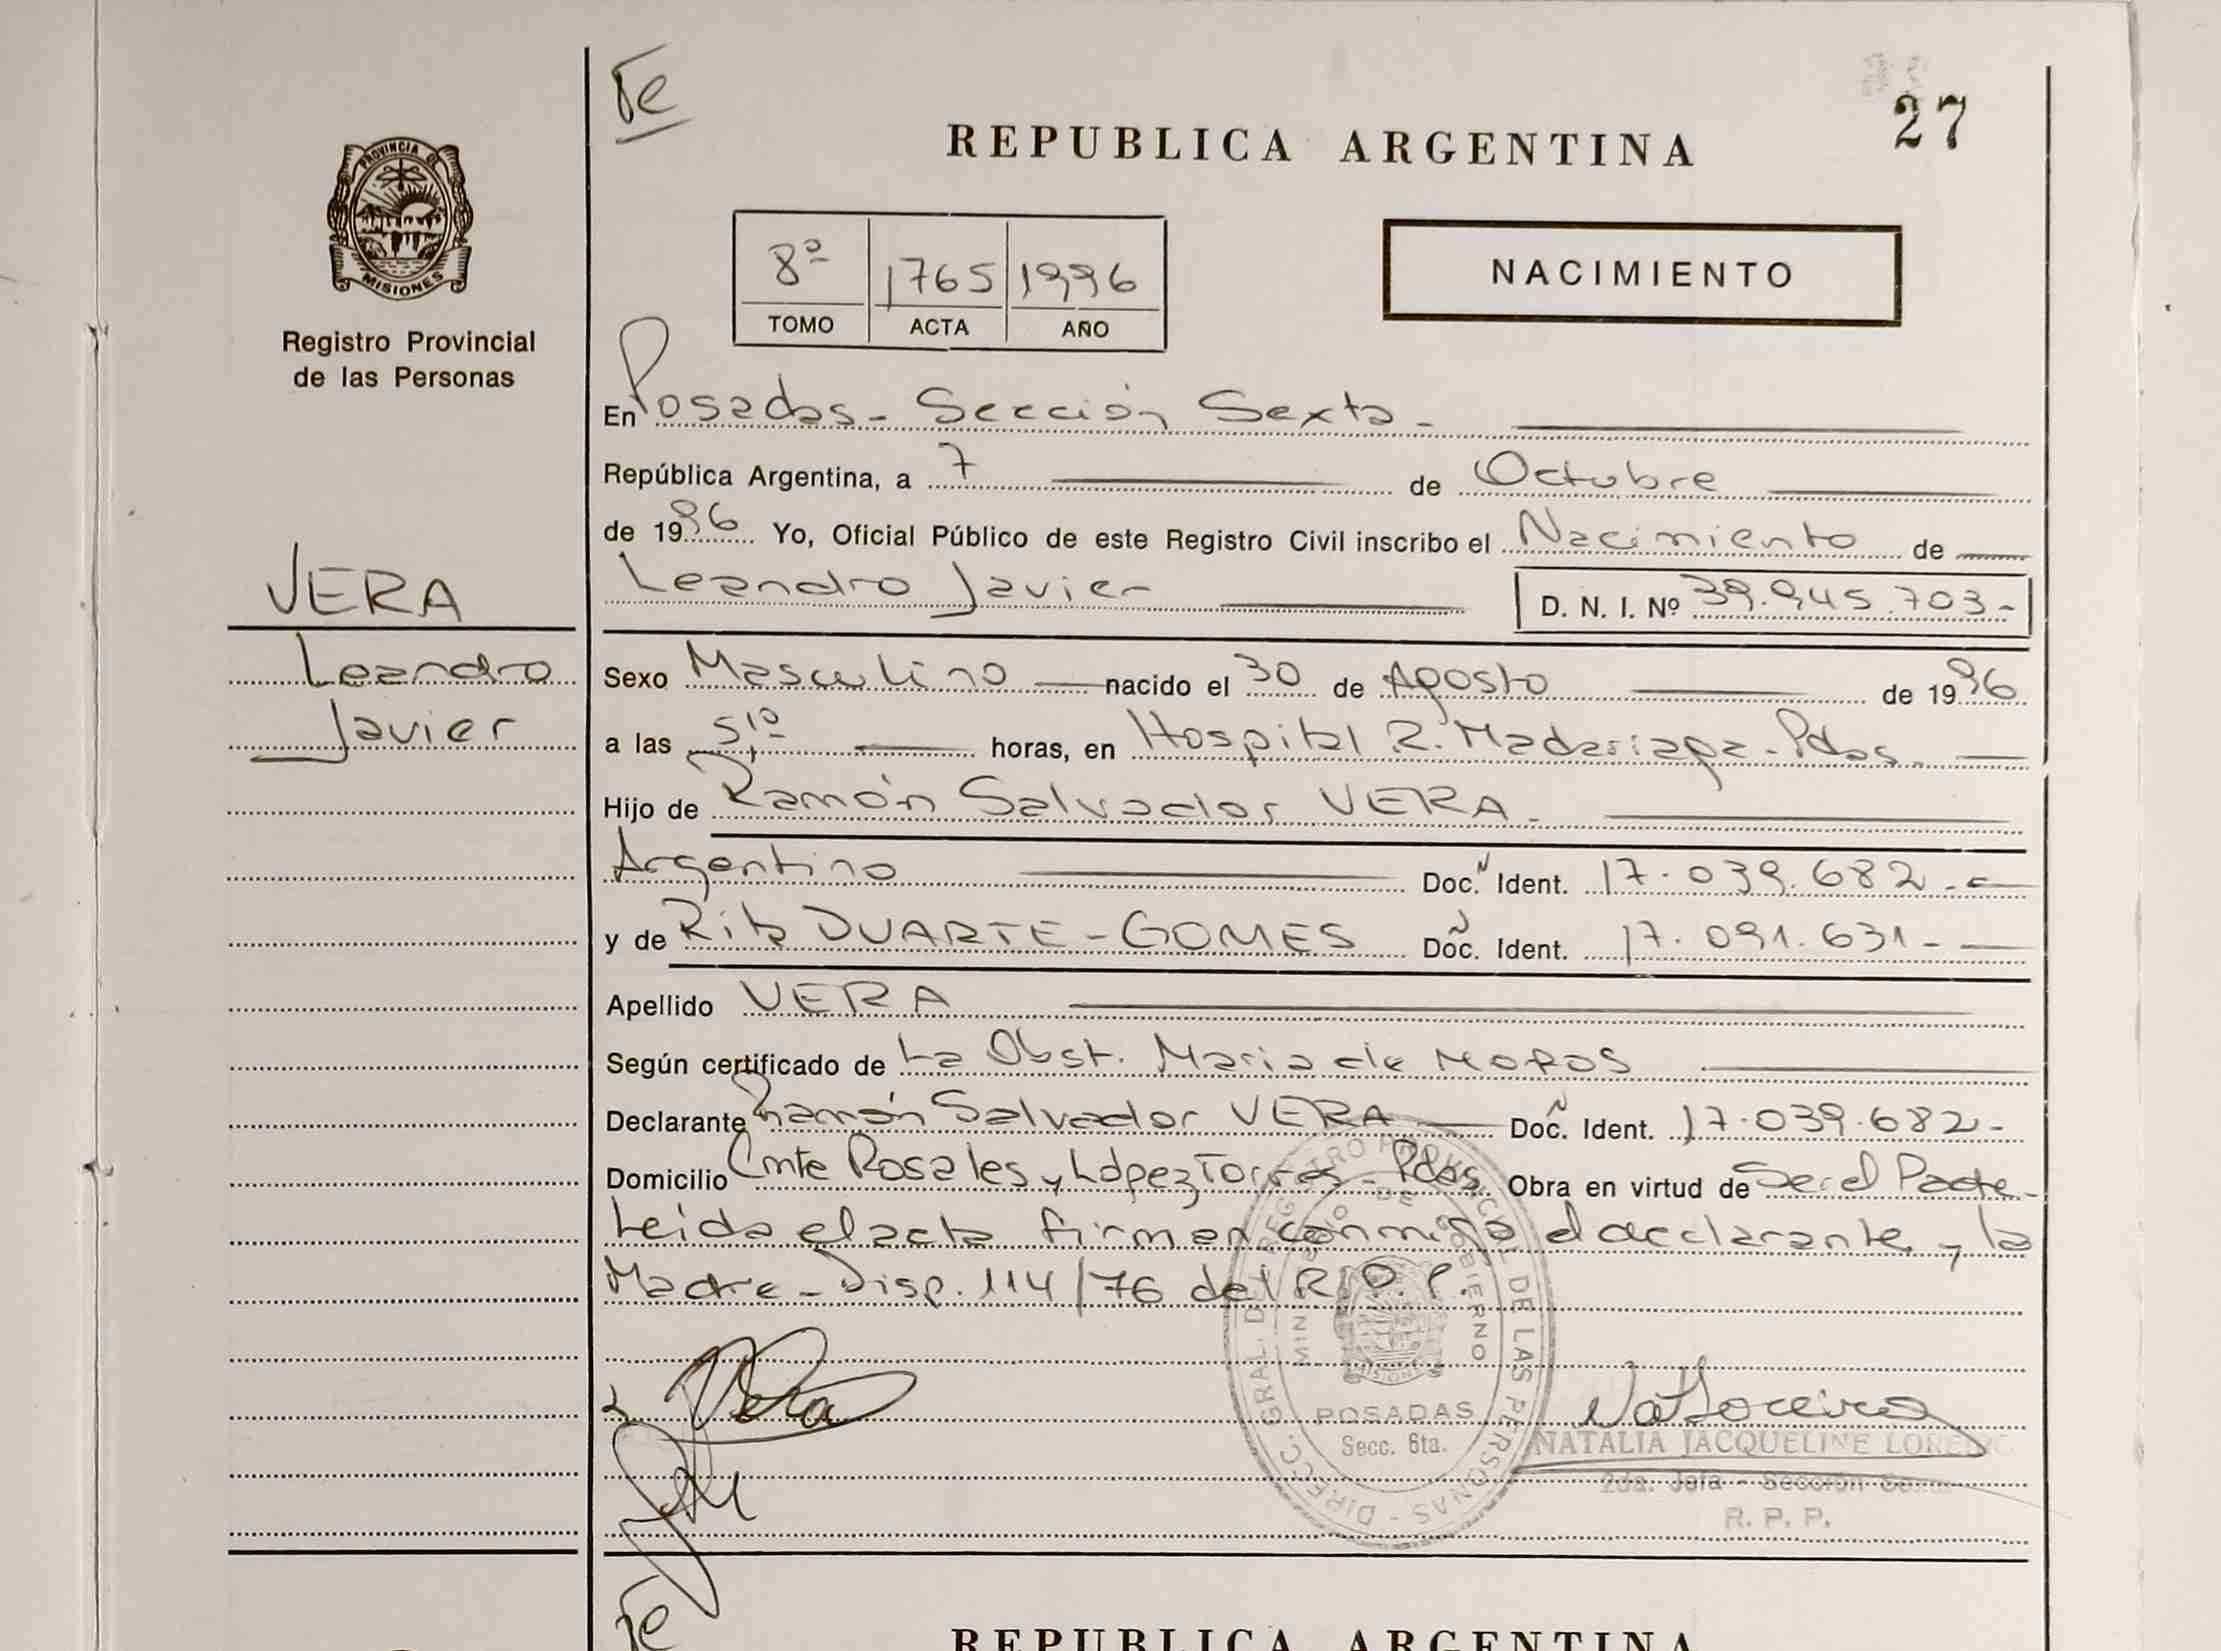 Te
27
REPUBLICA ARGENTINA
PROVINCIA DE
MISIONES
Registro Provincial
de las Personas
8º 1765 1996
TOMO ACTA AÑO
NACIMIENTO
VERA
Leandro
Javier
En Posadas - Sección Sexta -
República Argentina, a 7 de Octubre
de 1996 Yo, Oficial Público de este Registro Civil inscribo el Nacimiento de
Leandro Javier D. N. I. Nº 39.945.703-
Sexo Masculino nacido el 30 de Agosto de 1996
a las 5,10 horas, en Hospital R. Madariaga - Pdas.
Hijo de Ramón Salvador VERA -
Argentino Doc. Ident. 17.039.682 -
y de Rita DUARTE - GOMES Doc. Ident. 17.091.631 -
Apellido VERA
Según certificado de La Obst. Maria de MOROS
Declarante Ramón Salvador VERA Doc. Ident. 17.039.682 -
Domicilio Cmte Rosales y López Torres - Pdas. Obra en virtud de Ser el Padre -
Leida el acta firman conmigo el declarante y la
Madre - Disp. 114/76 del R.P.P.
Vera
DIRECC. GRAL. DEL REGISTRO PROVINCIAL DE LAS PERSONAS -
MINISTERIO DE GOBIERNO
MISIONES
POSADAS
Secc. 6ta.
NATALIA JACQUELINE
2da. Jefa - Sección
R. P. P.
Te
REPUBLICA ARGENTINA